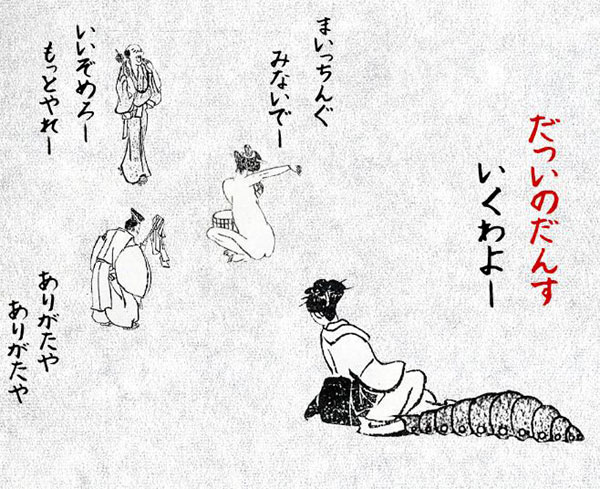 だついのだんす
いくわよー
まいっちんぐ
みないでー
いいぞめろー
もっとやれー
ありがたや
ありがたや